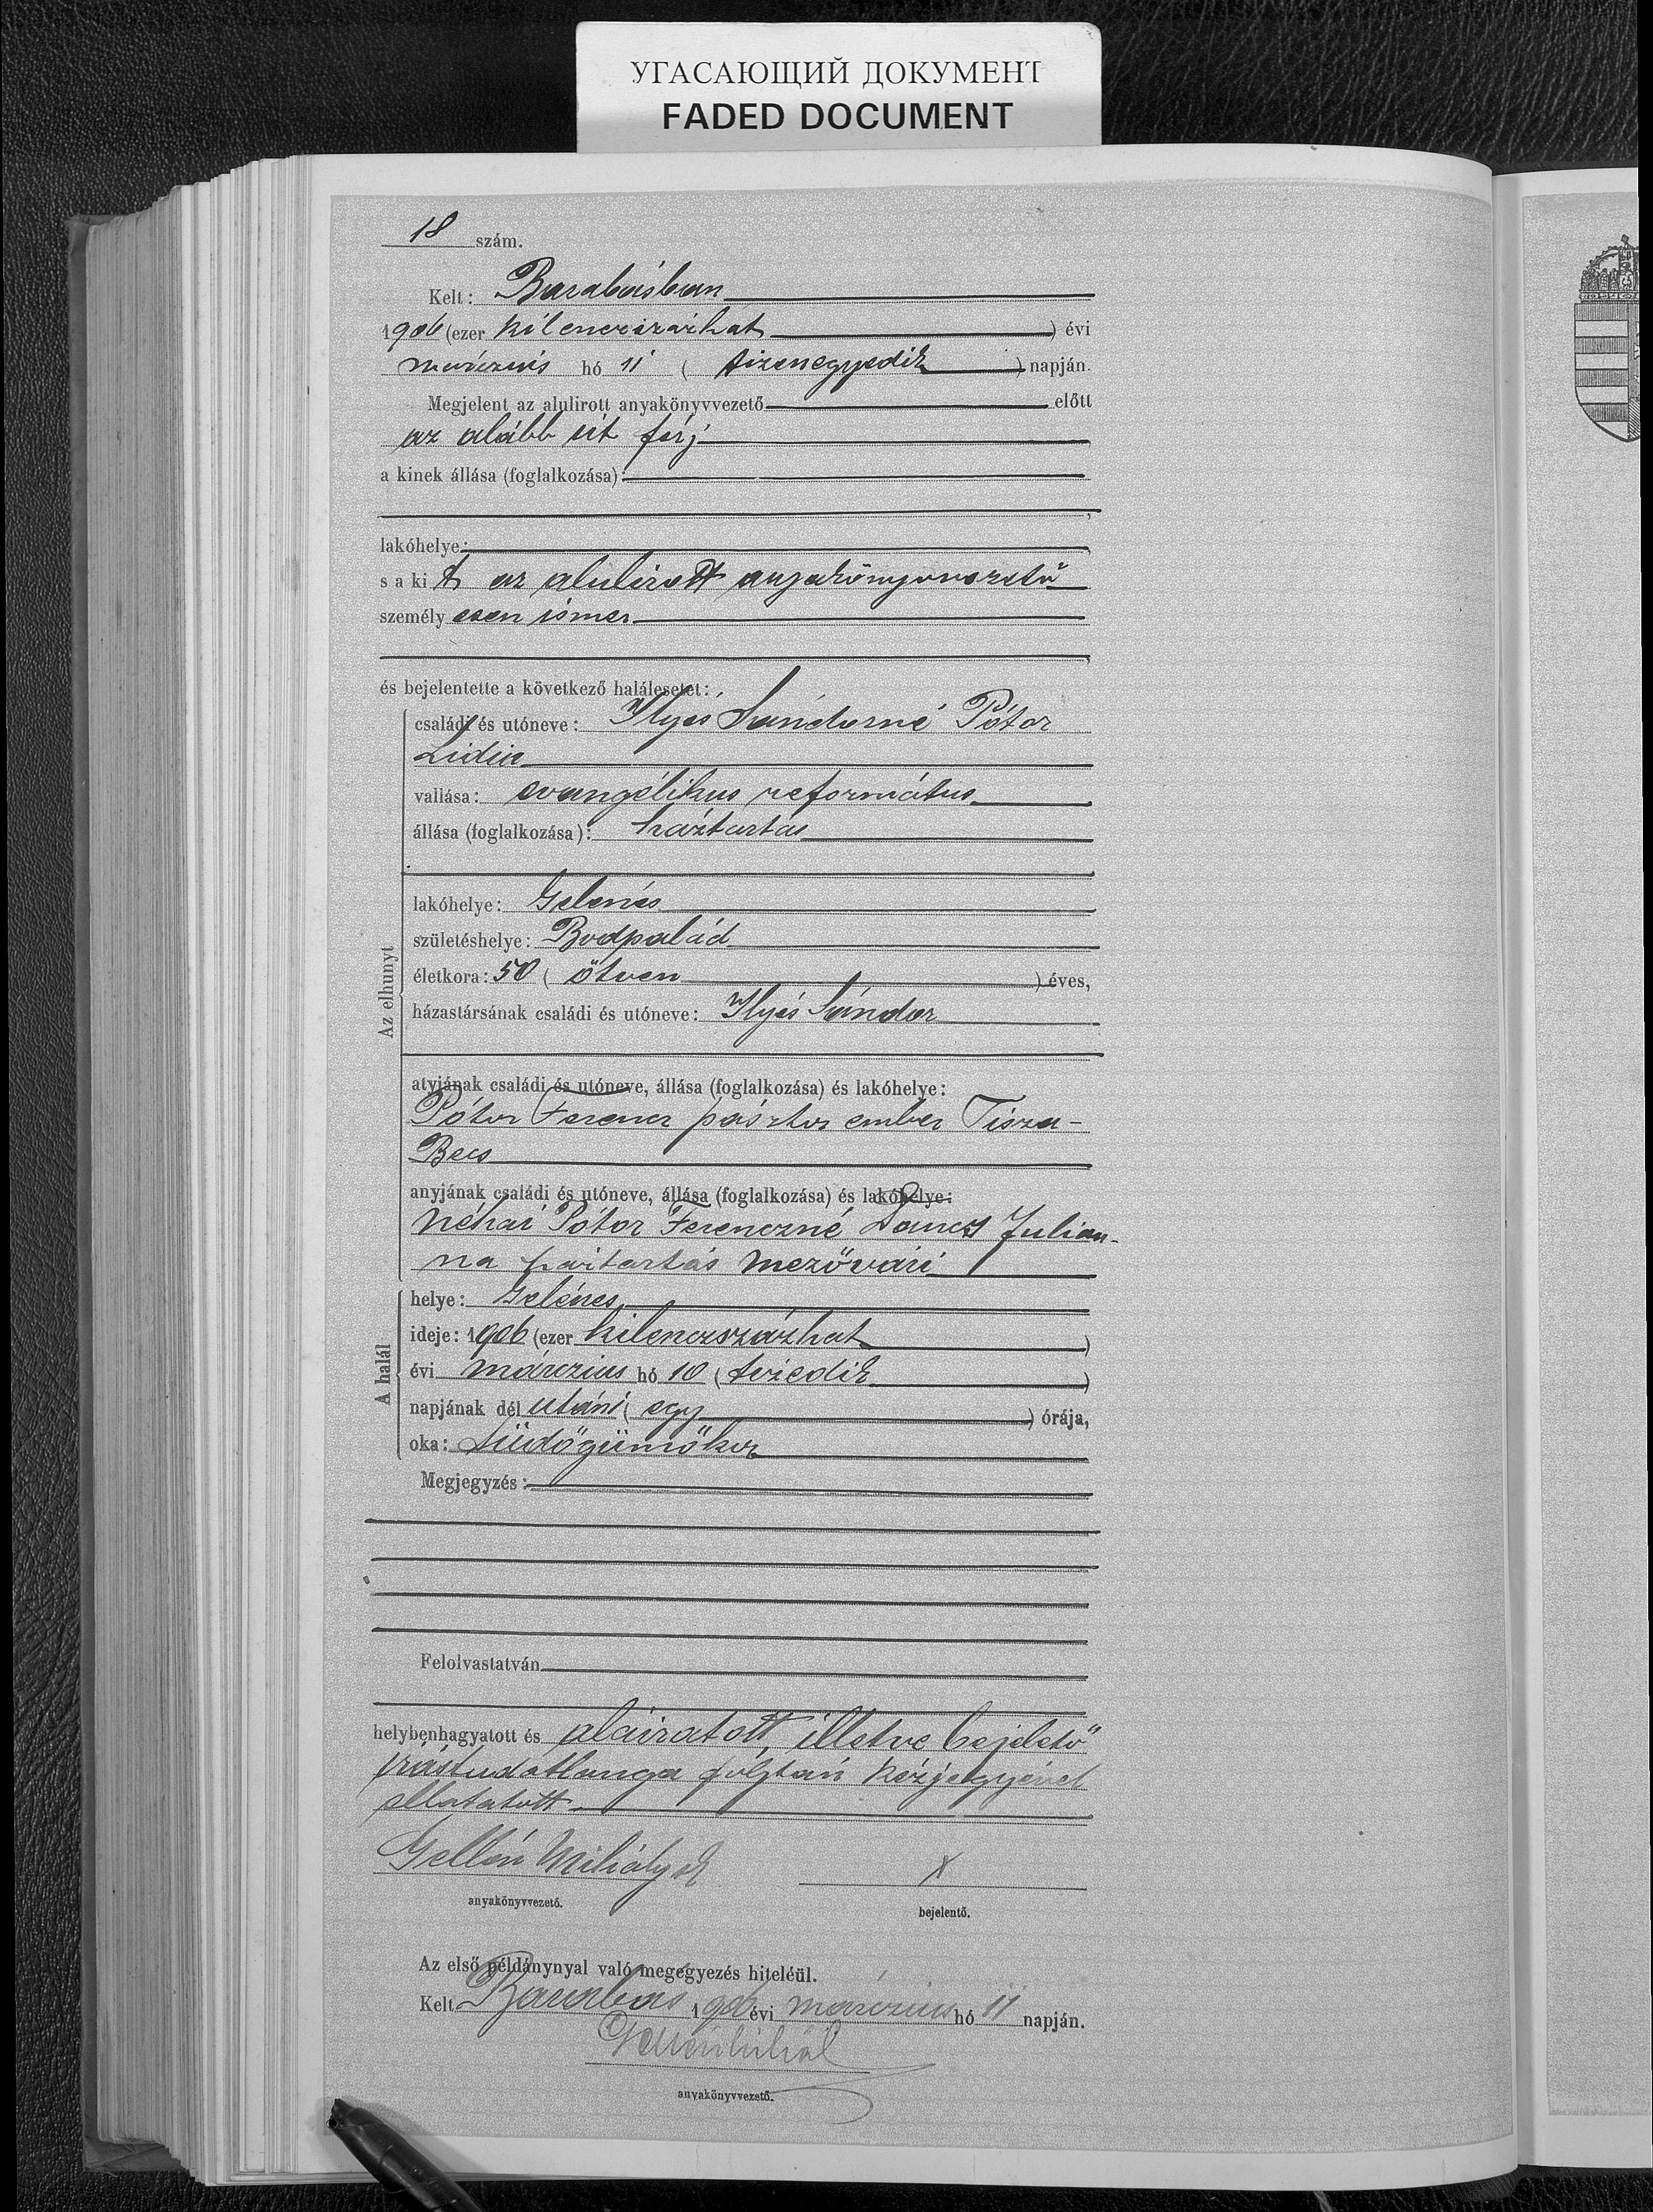 УГАСАЮЩИЙ ДОКУМЕНТ
FADED DOCUMENT
18 szám.
Kelt: Barabásban
1906 (ezer kilenczszázhat) évi
márczius hó 11 (tizenegyedik) napján.
Megjelent az alulirott anyakönyvvezető előtt
az alább írt férj
a kinek állása (foglalkozása):
lakóhelye:
s a kit az alulirott anyakönyvvezető
személyesen ismer
és bejelentette a következő halálesetet:
Az elhunyt
családi és utóneve: Ilyés Sándorné Pótor
Lidia
vallása: evangélikus református
állása (foglalkozása): háztartás
lakóhelye: Gelénes
születéshelye: Bodpalád
életkora: 50 (ötven) éves,
házastársának családi és utóneve: Ilyés Sándor
atyjának családi és utóneve, állása (foglalkozása) és lakóhelye:
Pótor Ferencz pásztor ember Tisza-
Becs
anyjának családi és utóneve, állása (foglalkozása) és lakóhelye:
néhai Pótor Ferenczné Julian-
na mezővári
A halál
helye: Gelénes
ideje: 1906 (ezer kilenczszázhat)
évi márczius hó 10 (tizedik)
napjának dél utáni (egy) órája,
oka: tüdőgümőkor
Megjegyzés:
Felolvastatván
helybenhagyatott és aláiratott, illetve bejelető
irástudatlansga folytán kézjegyével
ellátatott
Gellén Mihály
anyakönyvvezető.
X
bejelentő.
Az első példánynyal való megegyezés hiteléül.
Kelt Barabás 1906 évi márczius hó 11 napján.
anyakönyvvezető.